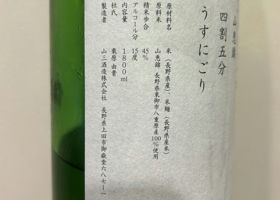 山恵錦
四割五分
うすにごり
原材料名 米(長野県産)、米麹(長野県産米)
原料米 山恵錦 長野県東御市八重原産100%使用
精米歩合 45%
アルコール分 15度
内容量 1800ml
杜氏 栗原由貴
製造者 山三酒造株式会社 長野県上田市御嶽堂六八七ー一